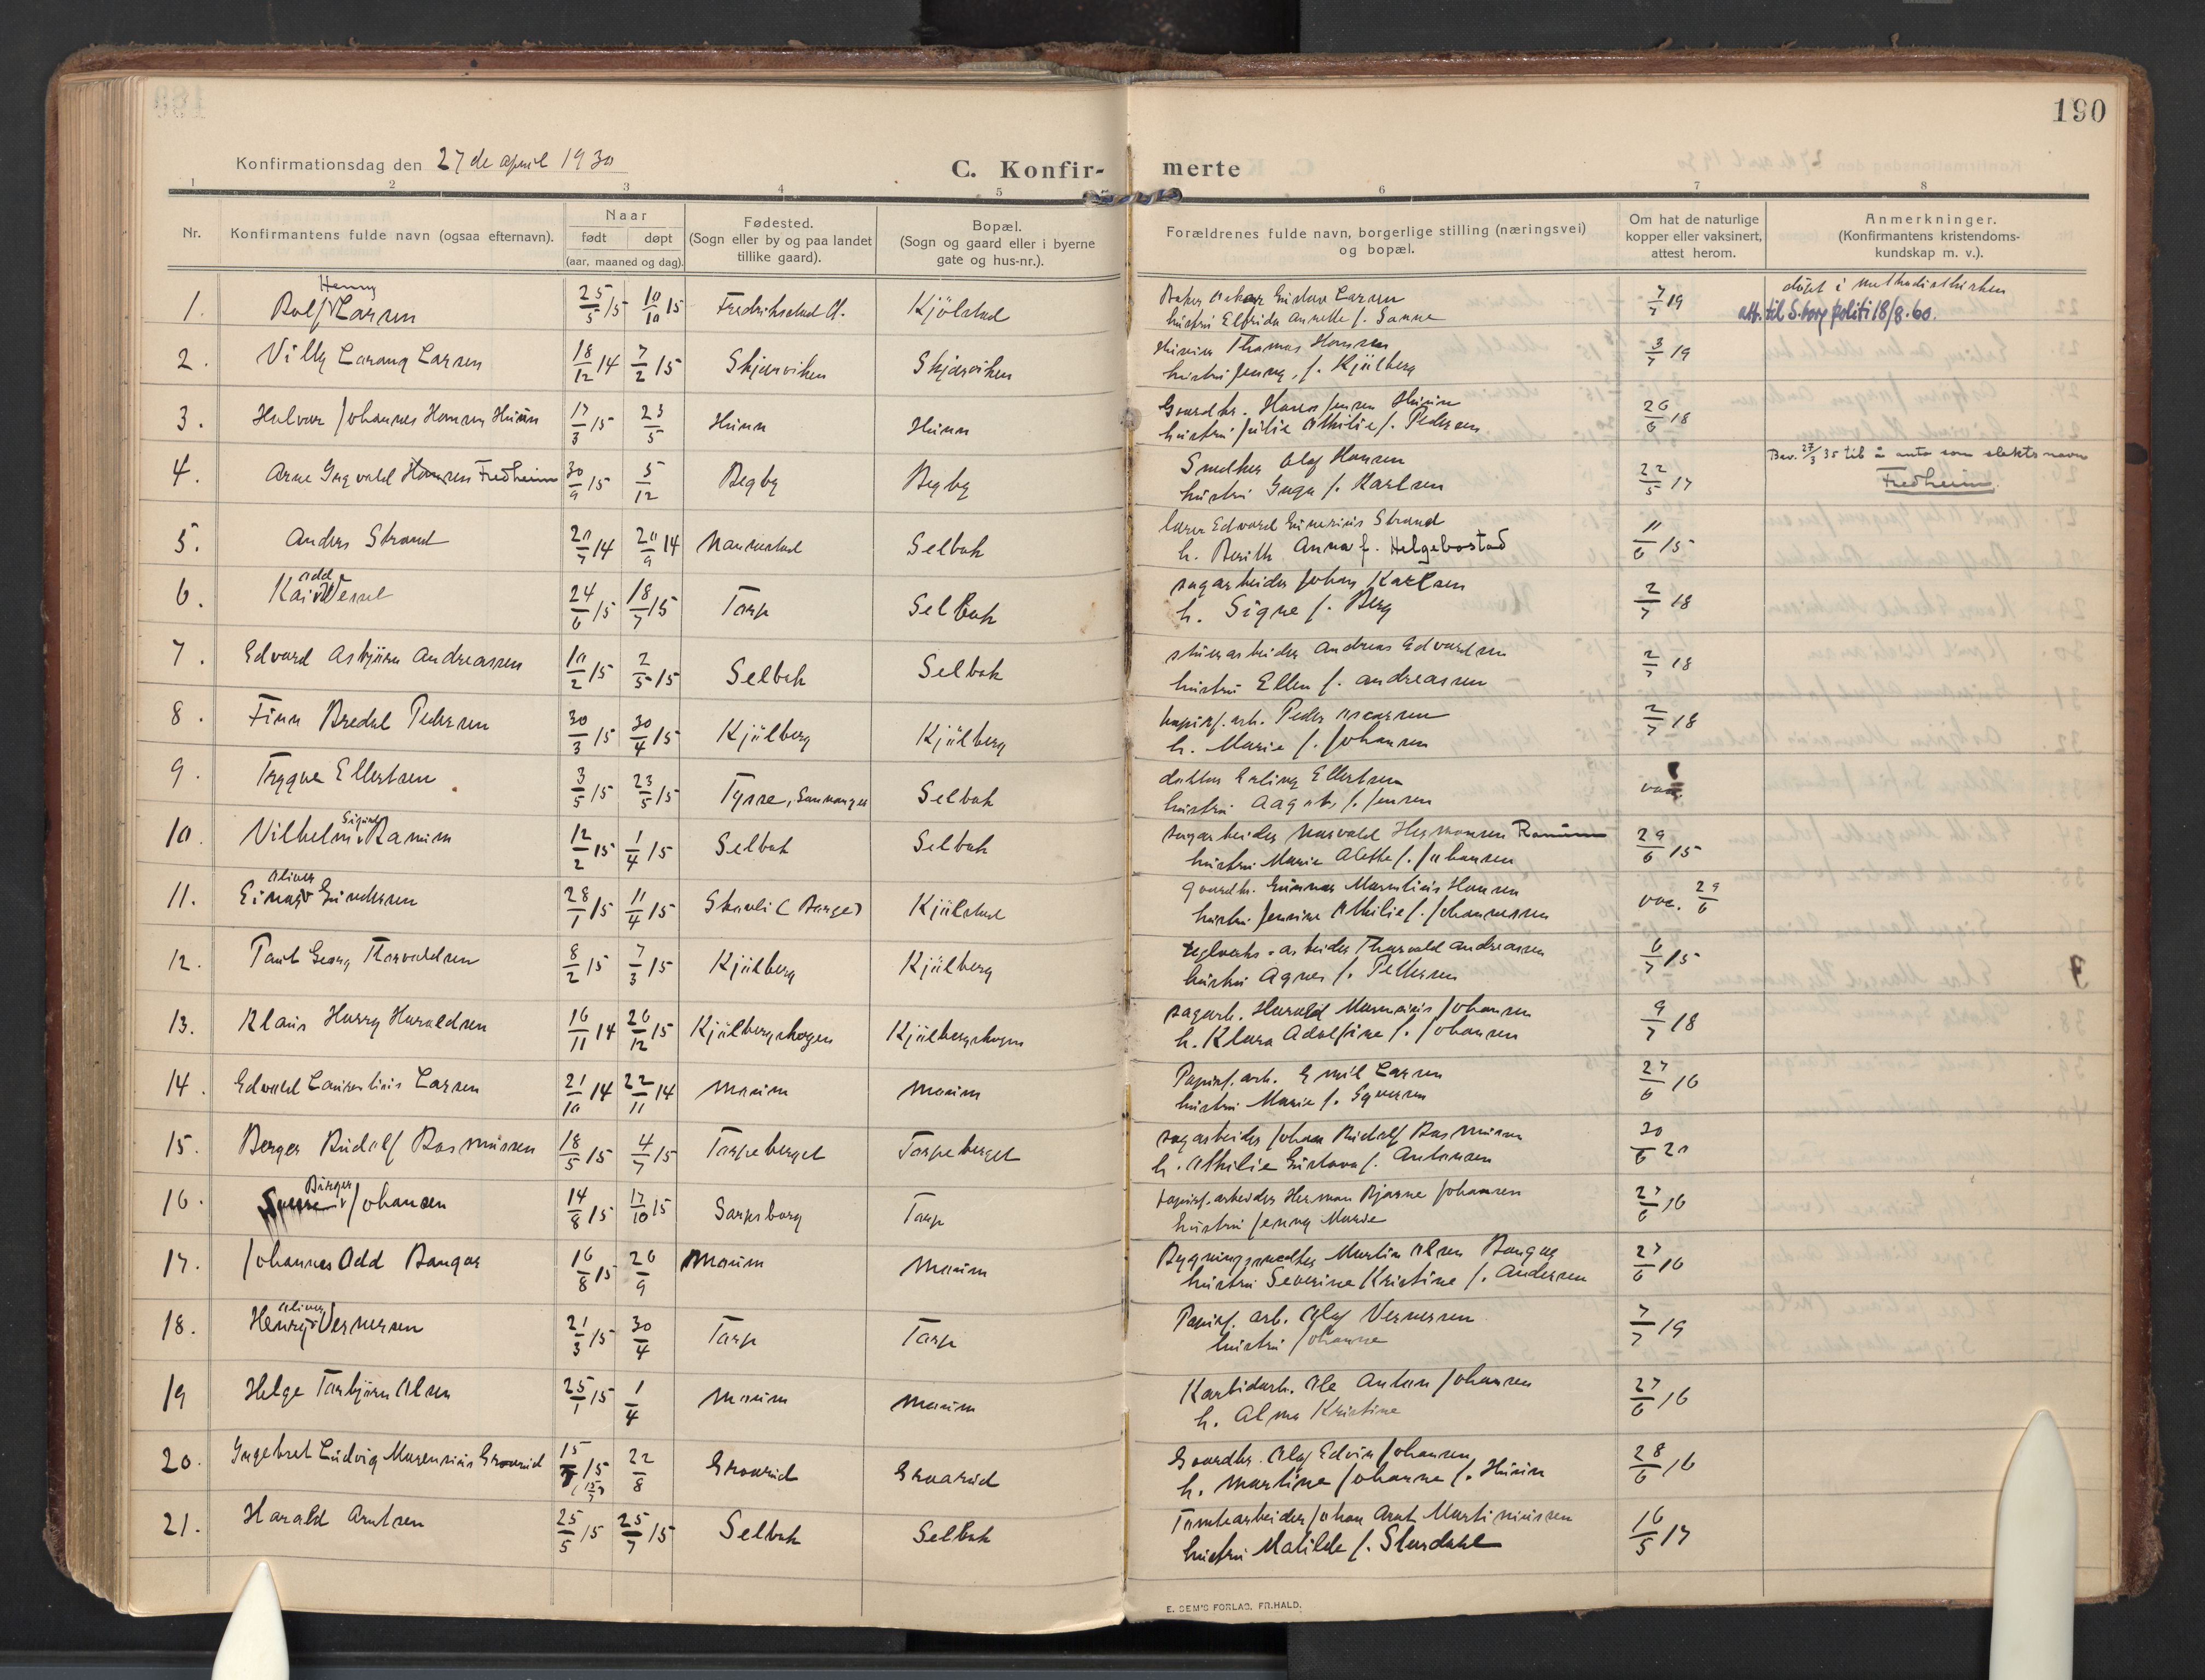 190
Konfirmationsdag den 27 de april 1930
C. Konfir- merte
1 2 3 4 5 6 7 8
Nr.
Konfirmantens fulde navn (ogsaa efternavn).
Naar
født døpt
(aar, maaned og dag).
Fødested.
(Sogn eller by og paa landet
tillike gaard).
Bopæl.
(Sogn og gaard eller i byerne
gate og hus-nr.).
Forældrenes fulde navn, borgerlige stilling (næringsvei)
og bopæl.
Om hat de naturlige
kopper eller vaksinert,
attest herom.
Anmerkninger.
(Konfirmantens kristendoms-
kundskap m. v.).
Henny
1. Rolf Larsen 25/5 15 10/10 15 Fredrikstad Kjölstad
Gustav Larsen 7/7 19 döpt i methodistkirken
hustru Elfrida Annette f. Sanne att. til S.borg politi 18/8.60.
2. Villy Larsen 18/12 14 7/2 15 Skjærviken Skjærviken
Thomas Hansen 3/7 19
hustru Jenny, f. Kjölberg
3. Halvor Johannes Hansen Hunn 17/3 15 23/5 Hunn Hunn
Gaardbr. Hans Jensen Hunn 26/6 18
hustru Julie Othilie f. Pedersen
4. Arne Ingvald Hansen Fredheim 30/9 15 5/12 Begby Begby
Snedker Olaf Hansen 22/5 17 Bev. 27/3 35 til å anta som slektsnavn
hustru Inga f. Karlsen Fredheim.
5. Anders Strand 20/7 14 20/9 14 Nannestad Selbak
lærer Edvard Strand 11/6 15
h. Berith Anna f. Helgebostad
Odd
6. Kai Wessel 24/6 15 18/7 15 Torp Selbak
sagarbeider Johan Karlsen 2/7 18
h. Signe f. Berg
7. Edvard Asbjörn Andreassen 10/2 15 2/5 15 Selbak Selbak
Andreas Edvardsen 2/7 18
hustru Ellen f. Andreassen
8. Finn Bredal Pedersen 30/3 15 30/4 15 Kjölberg Kjölberg
papirf. arb. Peder Oscarsen 2/7 18
h. Marie f. Johansen
9. Trygve Ellertsen 3/5 15 23/5 15 Tysse, Samnanger Selbak
doktor Erling Ellertsen vac.
hustru Aagot, f. Jensen
Sigurd
10. Vilhelm Ramum 12/2 15 1/4 15 Selbak Selbak
sagarbeider Hermansen Ramum 29/6 15
hustru Marie Alette f. Johansen
Oliver
11. Einar Gundersen 28/1 15 11/4 15 Skauli (Borge) Kjölstad
gaardb. Gunnar Hansen vac. 29/6
hustru Jensine Othilie f. Johannessen
12. Paul Georg Thorvaldsen 8/2 15 7/3 15 Kjölberg Kjölberg
teglverks-arbeider Thorvald Andreassen 6/7 15
hustru Agnes f. Pettersen
13. Klaus Harry Haraldsen 16/11 14 26/12 15 Kjölbergskogen Kjölbergskogen
sagarb. Harald Johansen 9/7 18
h. Klara Adolfine f. Johansen
14. Edvald Laurentius Larsen 21/10 14 22/11 14 Moum Moum
Papirf. arb. Emil Larsen 27/6 16
hustru Marie f. Syversen
15. Berger Rudolf Rasmussen 18/5 15 4/7 15 Torpeberget Torpeberget
sagarbeider Johan Rudolf Rasmussen 30/6 20
h. Othilie Gustava f. Antonsen
Birger
16. Sverre Johansen 14/8 15 17/10 15 Sarpsborg Torp
papirf. arbeider Herman Bjarne Johansen 27/6 16
hustru Jenny Marie
17. Johannes Odd Bangor 16/8 15 26/9 Moum Moum
Bygningssnedker Martin Olsen Bangor 27/6 16
hustru Severine Kristine f. Andersen
Oliver
18. Henry Vernersen 21/3 15 30/4 Torp Torp
Papirf. arb. Olaf Vernersen 7/7 19
hustru Johanne
19 Helge Torbjörn Olsen 25/1 15 1/4 Moum Moum
Karbidarb. Ole Anton Johansen 27/6 16
h. Alma Kristine
20. Ingebret Ludvig Marensius Graarud 15/7 15 22/8 Graarud Graarud
Gaardbr. Olaf Edvin Johansen 28/6 16
h. Martine Johanne f. Hunn
21. Harald Arntsen 25/5 15 25/7 15 Selbak Selbak
Tomtearbeider Johan Arnt Martiniussen 16/5 17
hustru Matilde f. Stordahl
E. SEM'S FORLAG, FR.HALD.